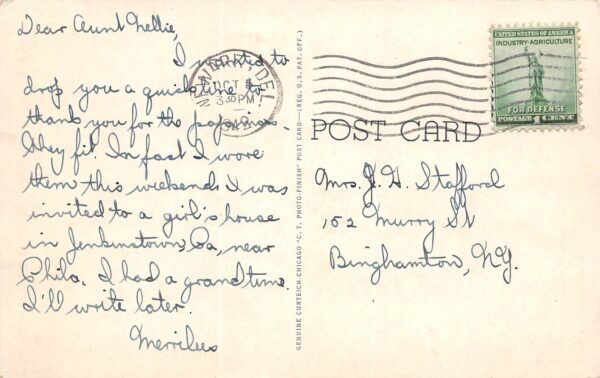 Dear Aunt Nellie,
I wanted to
drop you a quick line to
thank you for the pajamas.
They fit. In fact I wore
them this weekend. I was
invited to a girl's house
in Jenkinstown, Pa., near
Phila. I had a grand time.
I'll write later.
Merrilees
NEWARK, DEL.
OCT
3 30 PM
GENUINE CURTEICH-CHICAGO "C.T. PHOTO-FINISH" POST CARD—(REG. U. S. PAT. OFF.)
UNITED STATES OF AMERICA
INDUSTRY-AGRICULTURE
FOR DEFENSE
POSTAGE 1 CENT
POST CARD
Mrs. J. H. Stafford
152 Murry St
Binghamton, N.Y.